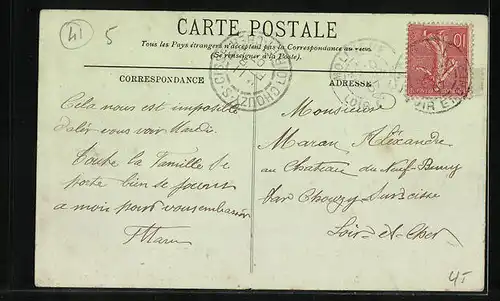 41
5
CARTE POSTALE
Tous les Pays étrangers n'acceptent pas la Correspondance au recto
(Se renseigner à la Poste).
CORRESPONDANCE
ADRESSE
10
CHOUZY-S-CISSE
LOIR-ET-CHER
Cela nous est impossible
d'aler vous voir Mardi.
Toute la Famille Se
porte bien Se
a moin pour vous embrasser
Maron
Monsieur
Maron Alexandre
au Chateau du Neuf-Bury
Par Chouzy Sur Cisse
Loir-et-Cher
4,-